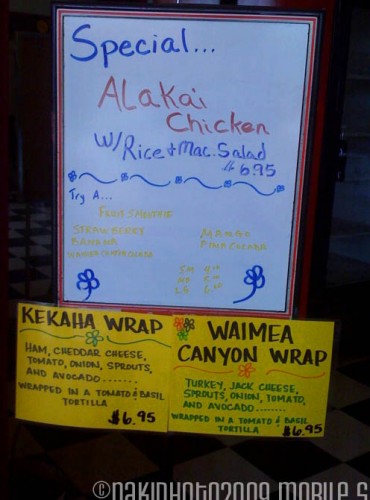 Special...
ALaKa'i
Chicken
W/Rice + Mac. Salad
$6.95
Try A...
FRUIT SMOOTHIE
STRAWBERRY MANGO
BANANA PINA COLADA
SM
LG
KEKAHA WRAP
HAM, CHEDDAR CHEESE,
TOMATO, ONION, SPROUTS,
AND AVOCADO.......
WRAPPED IN A TOMATO & BASIL
TORTILLA
$6.95
WAIMEA
CANYON WRAP
TURKEY, JACK CHEESE,
SPROUTS, ONION, TOMATO,
AND AVOCADO........
WRAPPED IN A TOMATO & BASIL
TORTILLA
$6.95
©NAKIPHOTO2009 MOBILE S